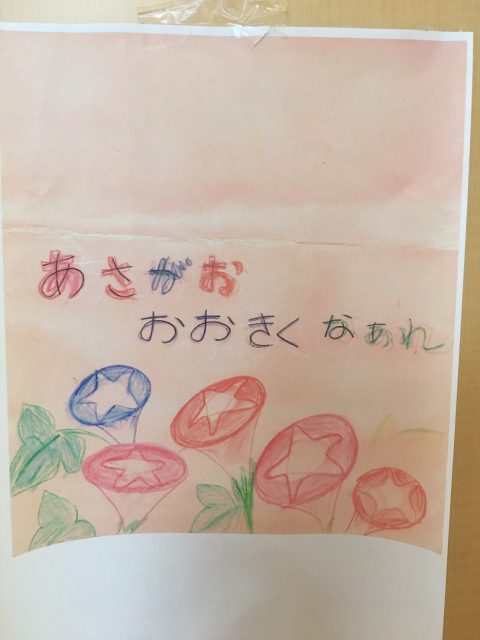 あさがお
おおきくなあれ